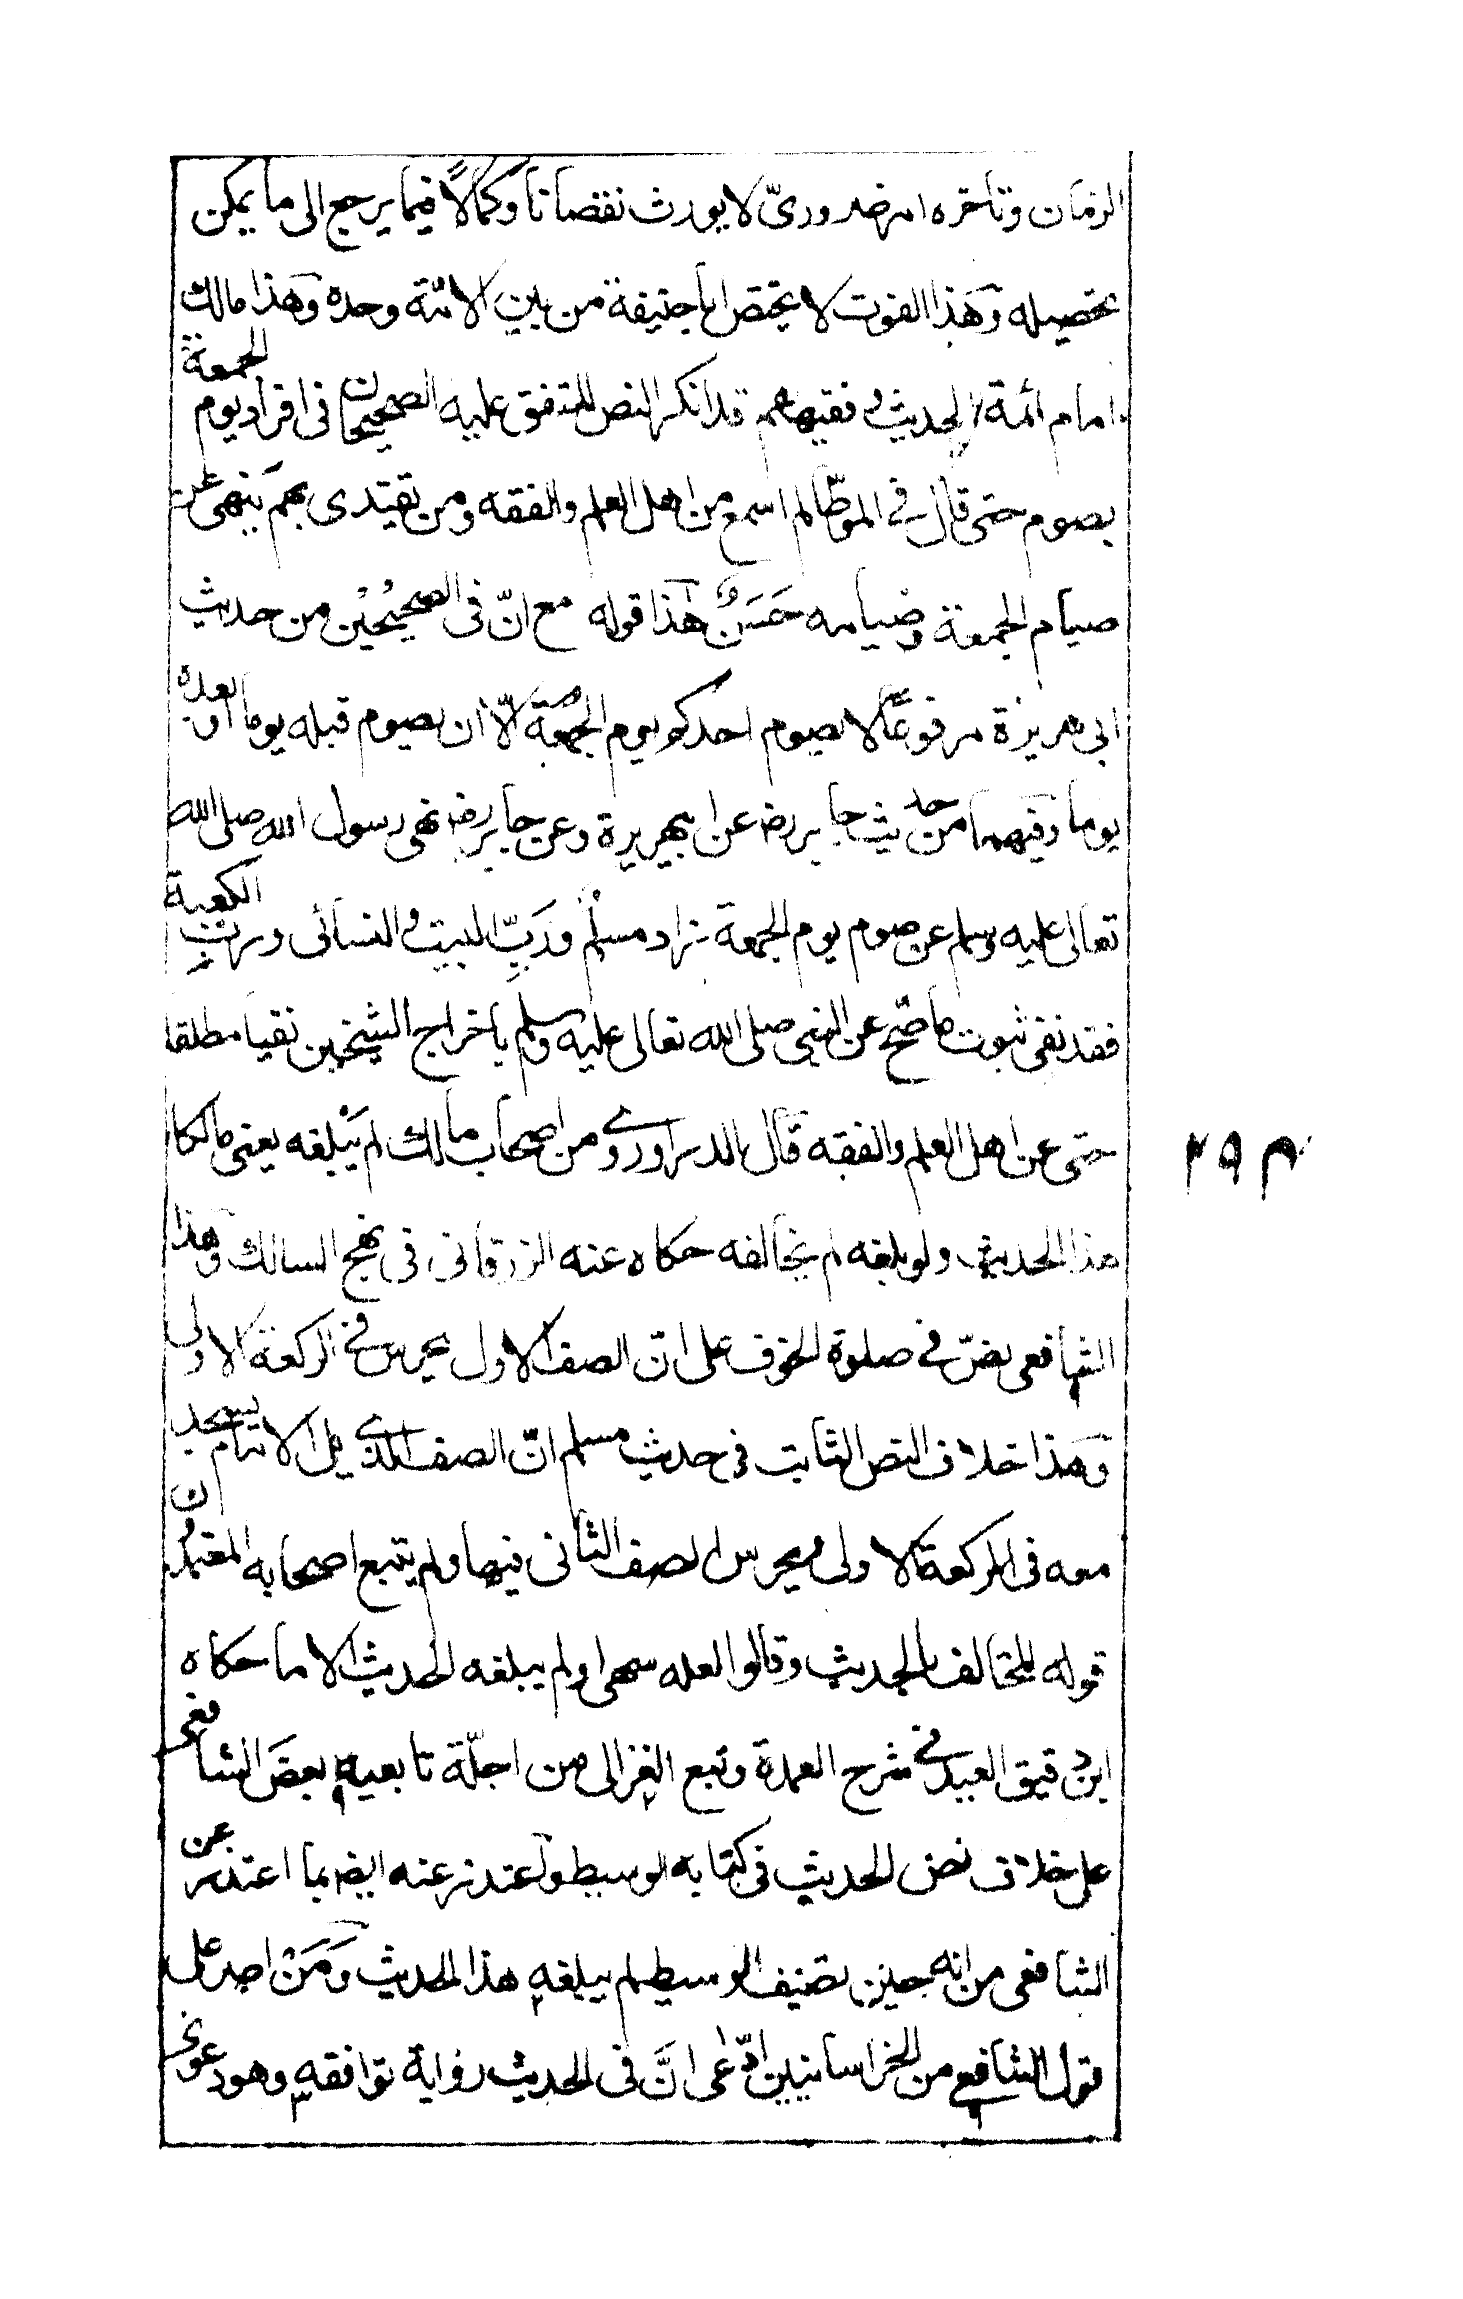 الزمان وتأخره امر ضروريّ لا يورث نقصانا وكمالًا فيما يرجع الى ما يمكن
تحصيله وهذا الفوت لا يختص اباحنيفة من بين الائمة وحده وهذا مالك
امام ائمة الحديث وفقيههم قد انكر النص المتفق عليه الصحيحان فى افراد يوم الجمعة
بصوم حتى قال فى الموطّا لم اسمع من اهل العلم والفقه ومن يقتدى بهم ينهى عن
صيام الجمعة وصيامه حَسَنٌ هذا قوله مع انّ فى الصحيحين من حديث
ابى هريرة مرفوعًا لا يصوم احدكم يوم الجمعة الّا ان يصوم قبله يوما او بعده
يوما وفيهما من حديث جابر رض عن ابيهريرة وعن جابر رض نهى رسول الله صلى الله
تعالى عليه وسلم عن صوم يوم الجمعة زاد مسلم وَرَبِّ البيت والنسائى وربِّ الكعبة
فقد نفى ثبوت ما صحّ عن النبى صلى الله تعالى عليه وسلم باخراج الشيخين نفيا مطلقا
حتى عن اهل العلم والفقه قال الدراوردى ومن اصحاب مالك لم يَبْلغه يعنى مالكا
هذا الحديث ولو بلغه لم يخالفه حكاه عنه الزرقانى فى نهج السالك وهذا
الشافعى نصّ فى صلوة الخوف على انّ الصف الاول يحرس فى الركعة الاولى
وهذا خلاف النص الثابت فى حديث مسلم انّ الصف الذى يلى الامام يسجد
معه فى الركعة الاولى ويحرس الصف الثانى فيها ولم يتبع اصحابه المقتدون
قوله المخالف بالحديث وقالوا لعله سهى او لم يبلغه الحديث الا ما حكاه
ابن دقيق العيد فى شرح العمدة وتبع الغزالى من اجلّة تابعيه بعضَ الشافعى
على خلاف نص الحديث فى كتابه الوسيط واعتذر عنه ايضا بما اعتذر عن
الشافعى من انه حين تصنيف الوسيط لم يبلغه هذا الحديث وَمَنْ اصر على
قول الشافعى من الخراسانيين ادّعى انَّ فى الحديث رواية توافقه وهو دعوى
٢٩٣